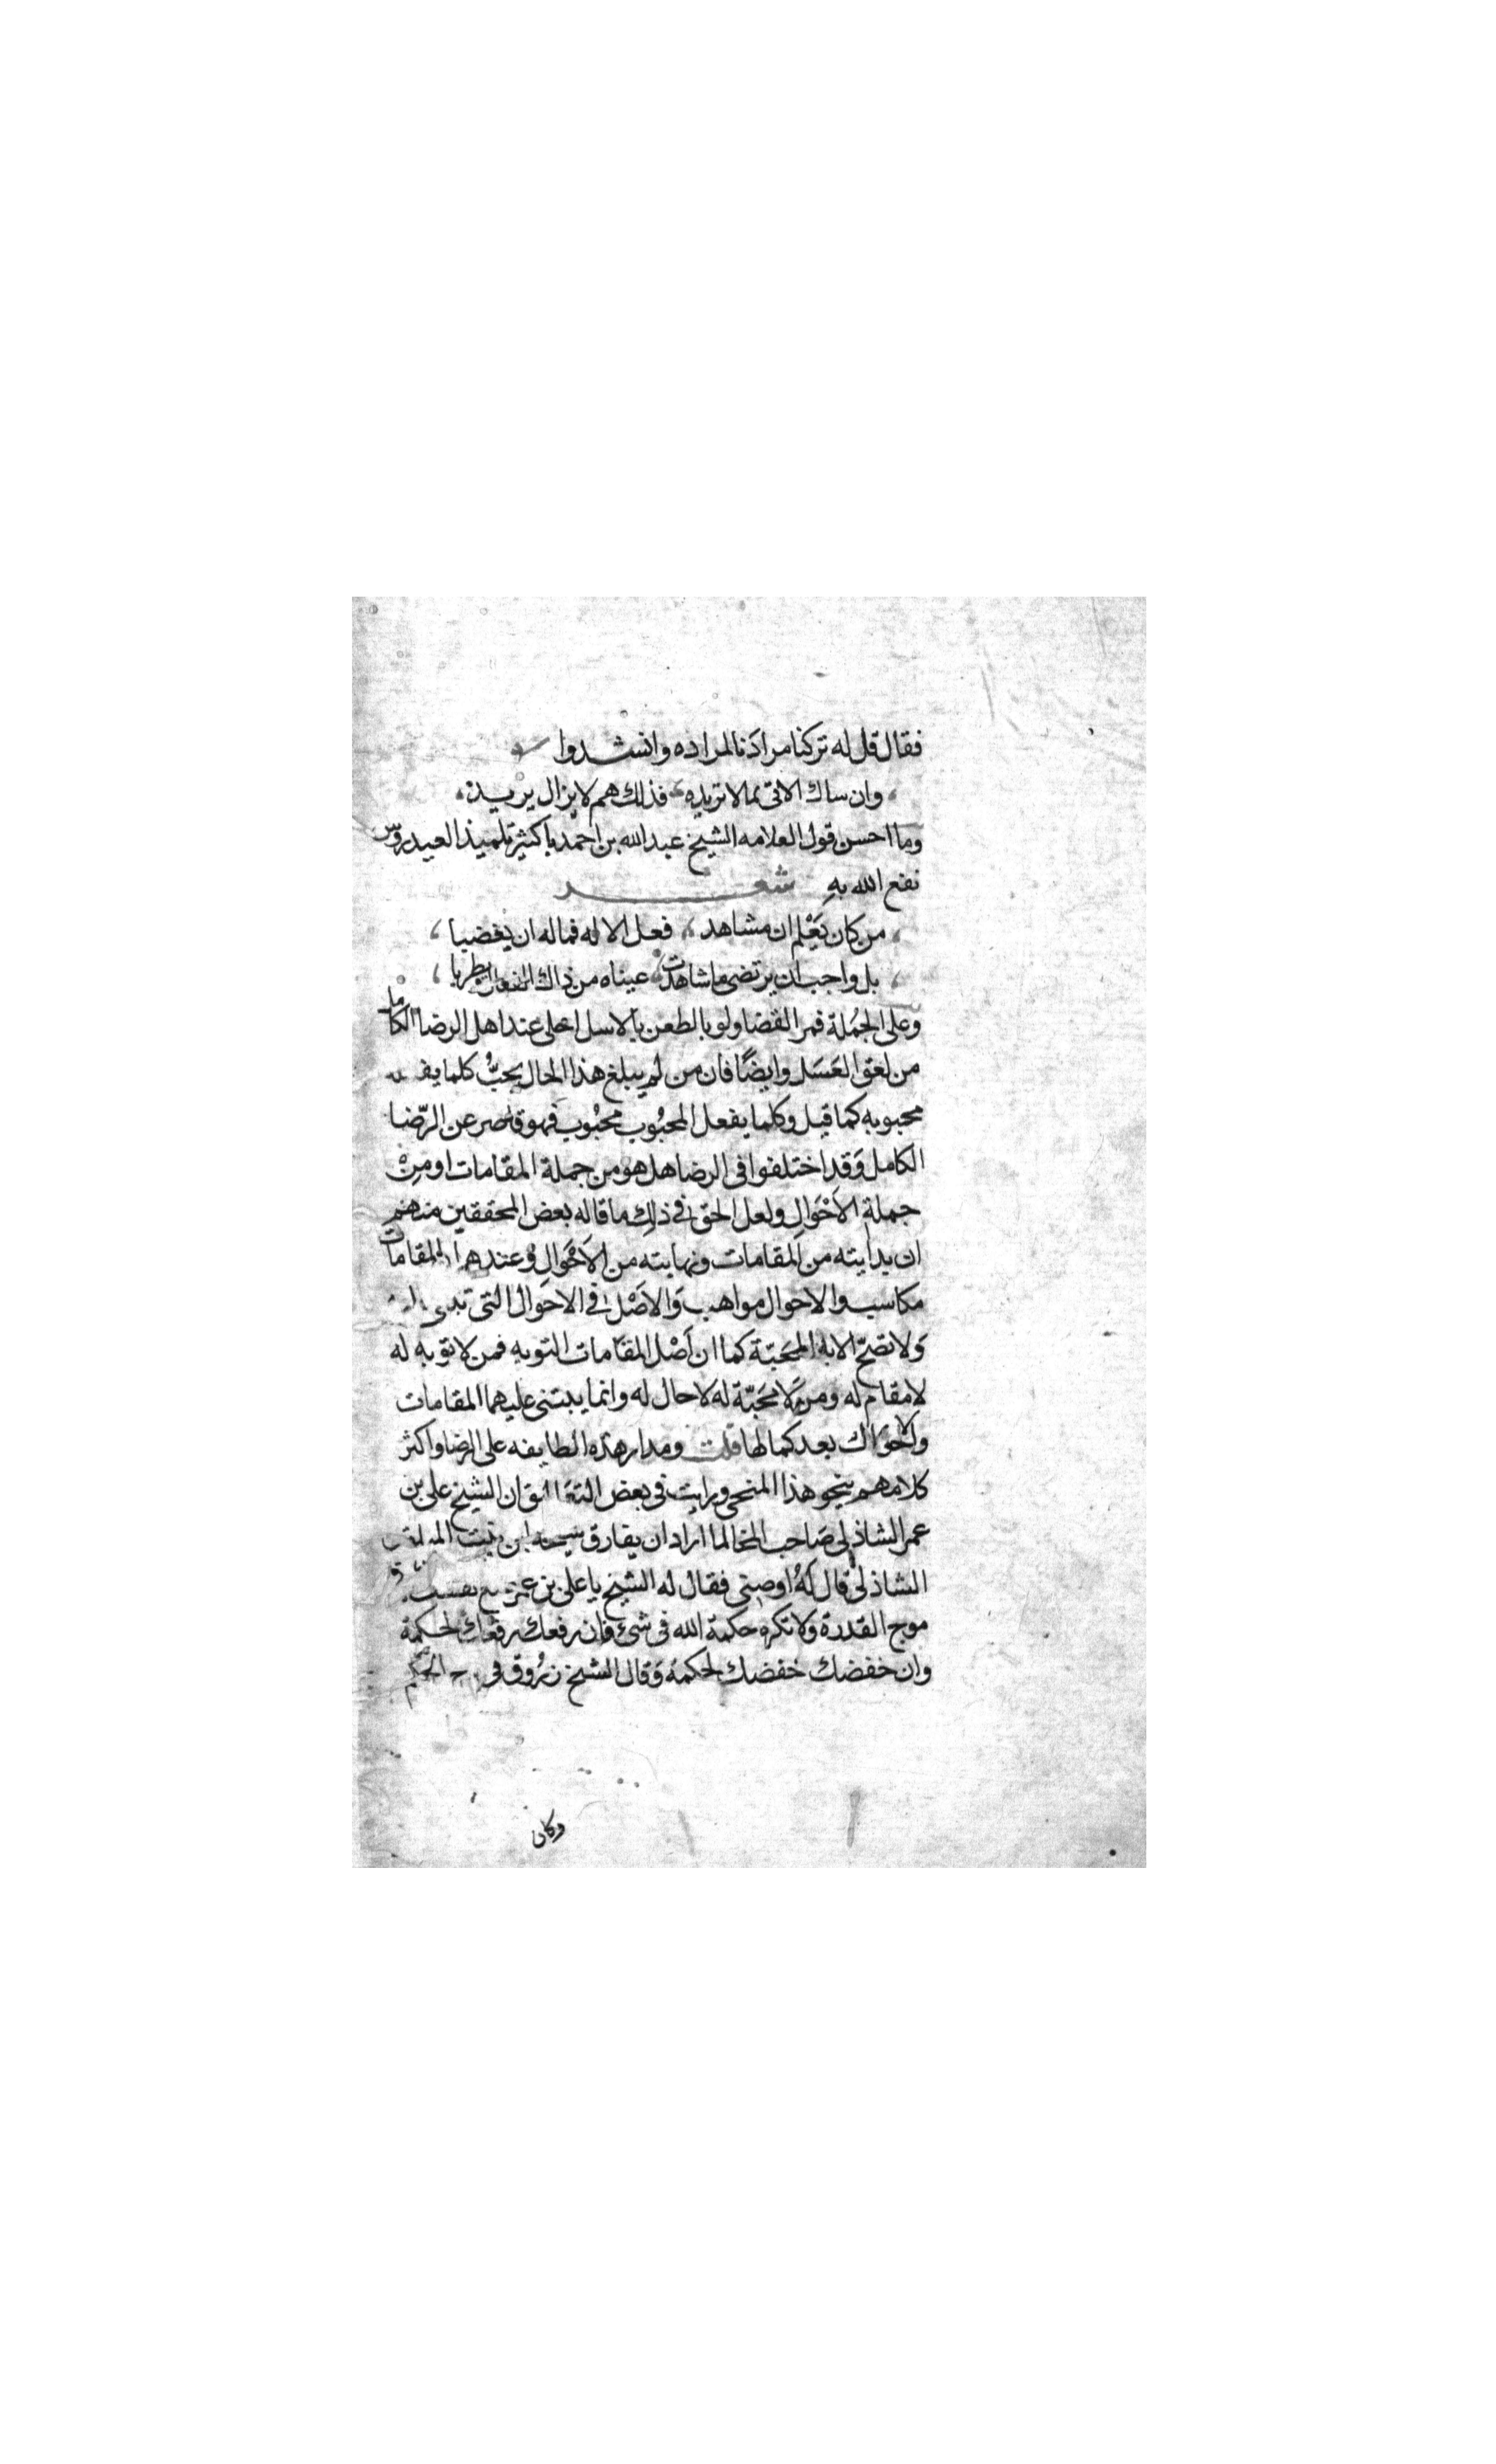 فقال قل له تركنا مرادَنا لمراده وانشدوا
وان ساك الاتى بما لا تريده فذلك هم لا يزال يريده
وما احسن قول العلامه الشيخ عبد الله بن احمد باكثير تلميذ العيدروس
نفع الله بهِ شعر
من كان يَعْلم ان مشاهد فعل الاله فماله ان يغضبا
بل واجب ان يرتضى ما شاهدت عيناه من ذاك الفعال يطربا
وعلى الجُملة فمر القضا ولو بالطعن بالاسل احلى عند اهل الرضا الكامل
من لعق العَسَل وايضًا فان من لم يبلغ هذا الحال بحبُّ كلما
محبوبه كما قيل وكلما يفعل المحبُوب محبُوب فهو قاصر عن الرّضا
الكامل وَقد اختلفوا فى الرضا هل هو من جملة المقامات او مِنْ
جملة الاَحْوَالِ ولعل الحق فى ذلِك ما قاله بعض المحققين منهم
ان بدايته من المقامات ونهايته من الاَحْوَالِ وُعندهم المقامات
مكاسب والاحوال مواهب وَالاَصْل فى الاحوَال التى
وَلا تصَحّ الا به المَحَبّة كما ان اَصْل المقامات التوبه فمن لا توبه له
لا مقام له ومن لا محَبّة له لا حال له وانما يبتنى عليهما المقامات
والاحوال بعد كمالها قلت ومدار هذه الطايفه على الرضا واكثر
كلامهم ينحو هذا المنحى ورايت فى بعض ان الشيخ على بن
عمر الشاذلى صَاحب المخا لما اراد ان يفارق شيخه ابن بنت
الشاذلى قال لَهُ اوصنى فقال له الشيخ يا على بن عمر
موج القدرة ولا تكره حكمة الله فى شئ فان رفعك رفعك لحكمة
وان خفضك خفضك لحكمة وَقال الشيخ زرُوق فى الحكم
وكان